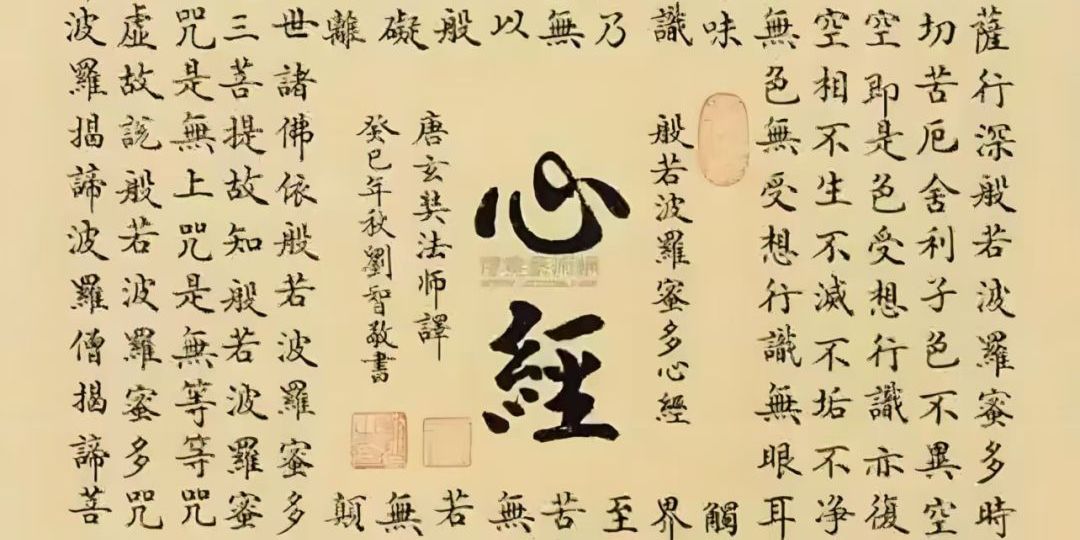 薩行深般若波羅蜜多時
切苦厄舍利子色不異空
空即是色受想行識亦復
空相不生不滅不垢不净
無色無受想行識無眼耳
味
觸
識
界
乃
至
無
苦
以
無
般
若
礙
無
離
顛
世諸佛依般若波羅蜜多
三菩提故知般若波羅蜜
咒是無上咒是無等等咒
虛故説般若波羅蜜多咒
波羅揭諦波羅僧揭諦菩
般若波羅蜜多心經
心經
唐玄奘法師譯
癸巳年秋劉智敬書